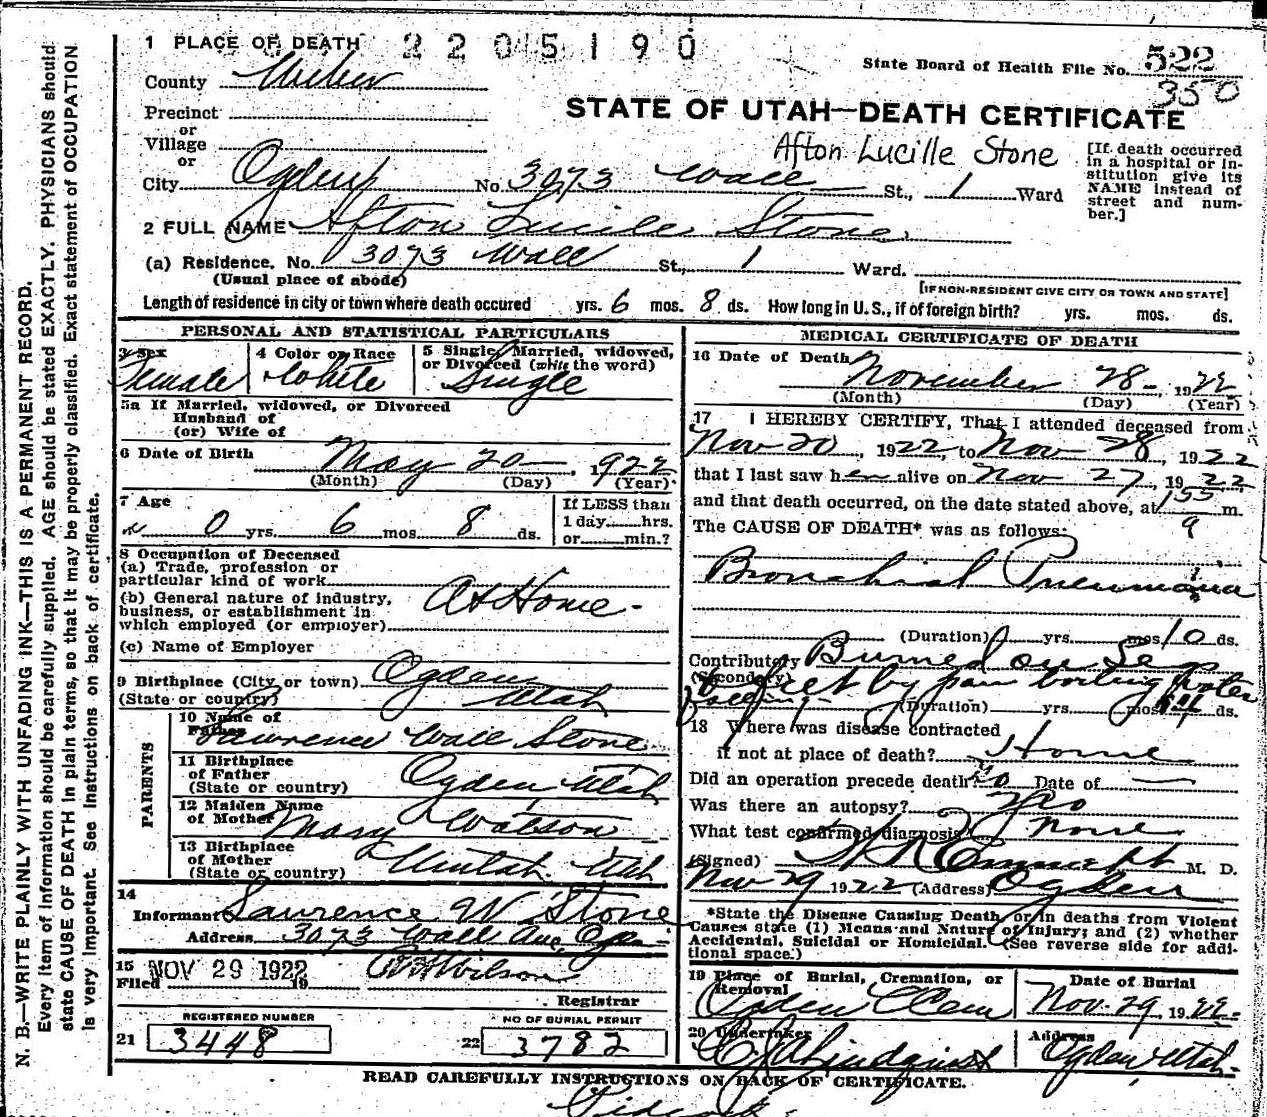 1 PLACE OF DEATH 2205190
State Board of Health File No. 522
350
County Weber
STATE OF UTAH—DEATH CERTIFICATE
Precinct
or
Village
or
Afton Lucille Stone
[If death occurred in a hospital or institution give its NAME instead of street and number.]
City Ogden No. 3073 Wall St., 1 Ward
2 FULL NAME Afton Lucile Stone
(a) Residence. No. 3073 Wall St., 1 Ward.
(Usual place of abode) [IF NON-RESIDENT GIVE CITY OR TOWN AND STATE]
Length of residence in city or town where death occured yrs. 6 mos. 8 ds. How long in U.S., if of foreign birth? yrs. mos. ds.
PERSONAL AND STATISTICAL PARTICULARS
3 Sex Female
4 Color or Race White
5 Single, Married, widowed, or Divorced (write the word) Single
5a If Married, widowed, or Divorced
Husband of
(or) Wife of
6 Date of Birth May 20 — , 1922
(Month) (Day) (Year)
7 Age 0 yrs. 6 mos. 8 ds.
If LESS than
1 day......hrs.
or......min.?
8 Occupation of Deceased
(a) Trade, profession or
particular kind of work
(b) General nature of industry,
business, or establishment in
which employed (or employer) At Home -
(c) Name of Employer
9 Birthplace (City or town) Ogden
(State or country) Utah
PARENTS
10 Name of Father Lawrence Wall Stone
11 Birthplace
of Father
(State or country) Ogden Utah
12 Maiden Name
of Mother Mary Watson
13 Birthplace
of Mother
(State or country) Uintah Utah
14
Informant Lawrence W Stone
Address 3073 Wall Ave, Ogden
15
Filed NOV 29 1922 19 Wilson
Registrar
REGISTERED NUMBER
21 3448
NO OF BURIAL PERMIT
22 3782
MEDICAL CERTIFICATE OF DEATH
16 Date of Death November 28 - , 1922
(Month) (Day) (Year)
17 I HEREBY CERTIFY, That I attended deceased from
Nov 20 , 1922, to Nov 28 , 1922
that I last saw her alive on Nov 27, 1922
and that death occurred, on the date stated above, at 155 m.
The CAUSE OF DEATH* was as follows:
Bronchial Pneumonia
(Duration) yrs. mos. 10 ds.
Contributory Burned on Legs
(Secondary) & feet by pan boiling water
falling (Duration) yrs. mos. ds.
18 Where was disease contracted
if not at place of death? Home
Did an operation precede death? No Date of —
Was there an autopsy? No
What test confirmed diagnosis? None
(Signed) Emmett M. D.
Nov 29 1922 (Address) Ogden
*State the Disease Causing Death, or in deaths from Violent
Causes state (1) Means and Nature of Injury; and (2) whether
Accidental, Suicidal or Homicidal. (See reverse side for addi-
tional space.)
19 Place of Burial, Cremation, or
Removal
Ogden Cem
Date of Burial
Nov. 29, 1922.
20 Undertaker
Lindquist
Address
Ogden Utah.
READ CAREFULLY INSTRUCTIONS ON BACK OF CERTIFICATE.
N. B.—WRITE PLAINLY WITH UNFADING INK—THIS IS A PERMANENT RECORD.
Every item of information should be carefully supplied. AGE should be stated EXACTLY. PHYSICIANS should
state CAUSE OF DEATH in plain terms, so that it may be properly classified. Exact statement of OCCUPATION
is very important. See instructions on back of certificate.